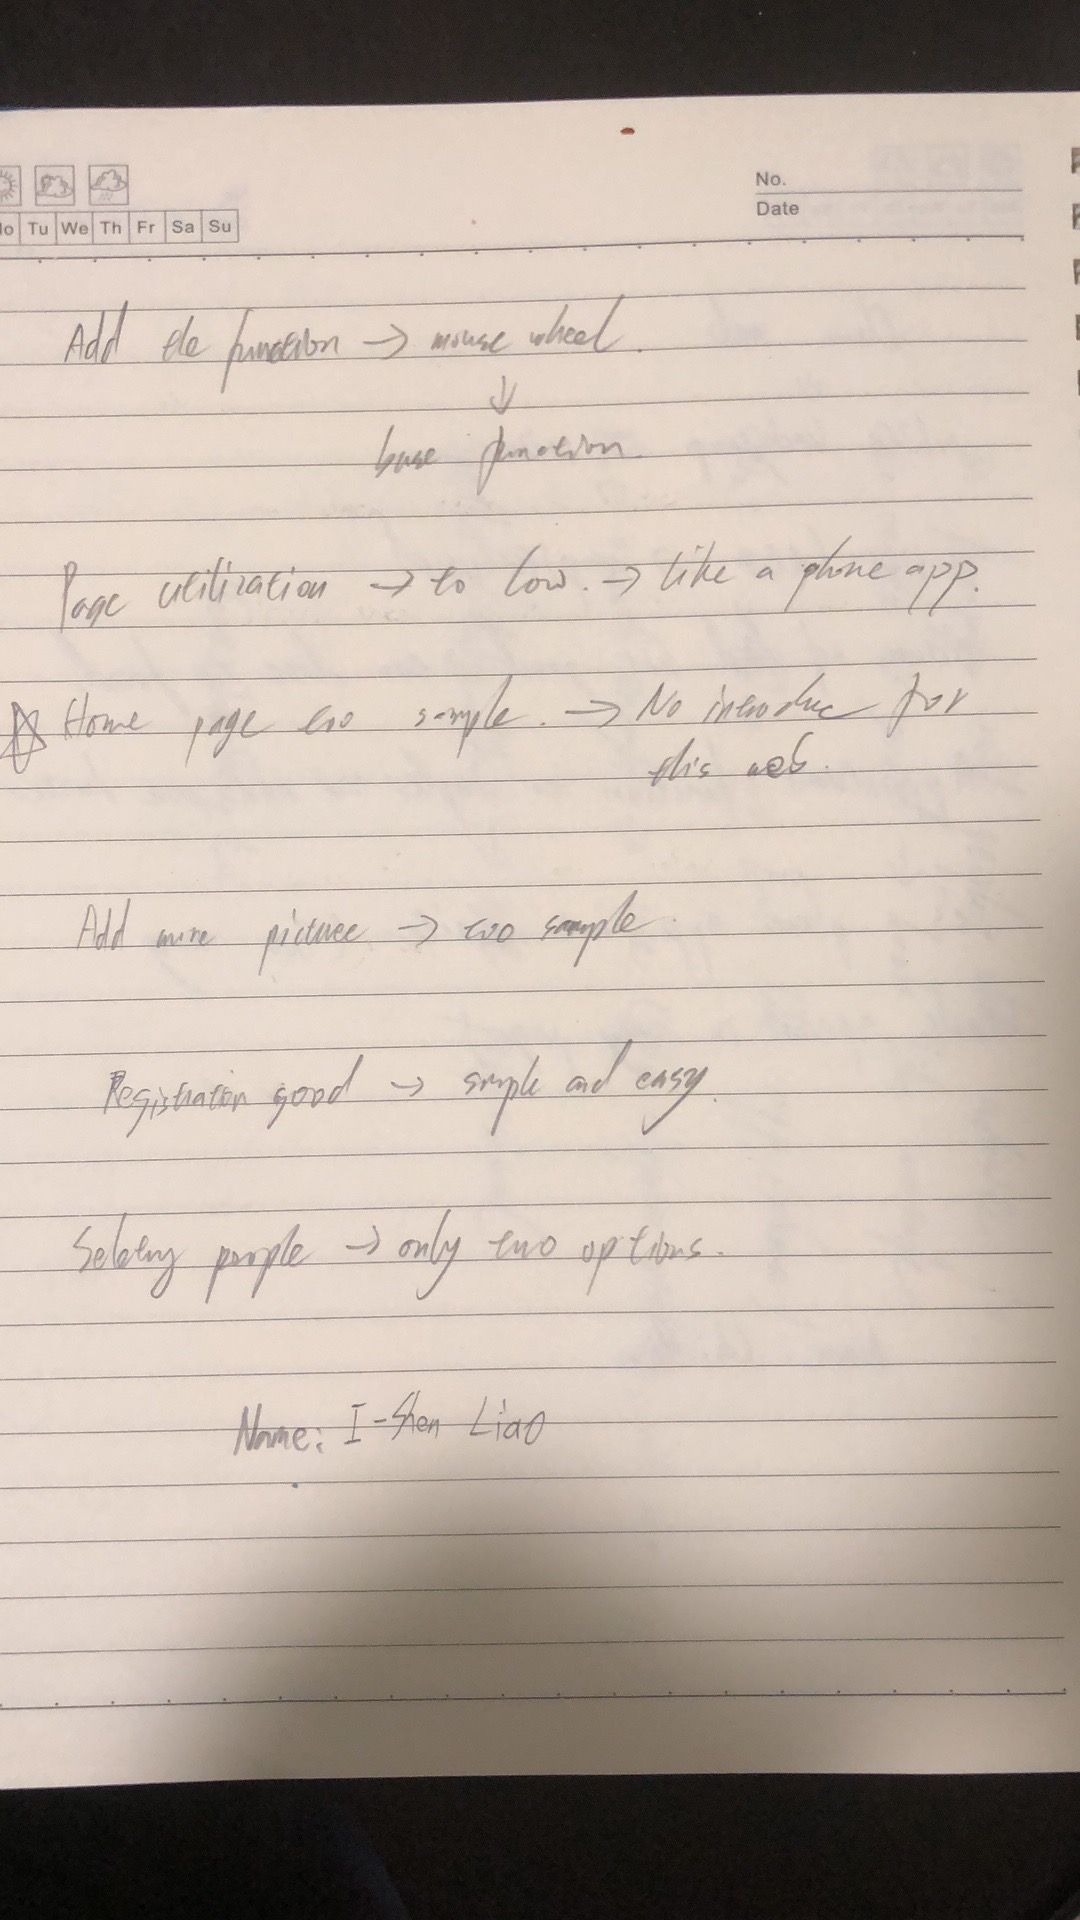 No.
Date
Mo Tu We Th Fr Sa Su
Add the function → mouse wheel.
↓
base function.
Page utilization → to low. → like a phone app.
☆ Home page too sample. → No introduc for
this web.
Add more picture → too sample.
Registration good → smple and easy.
people → only two options.
Name: I-Shen Liao